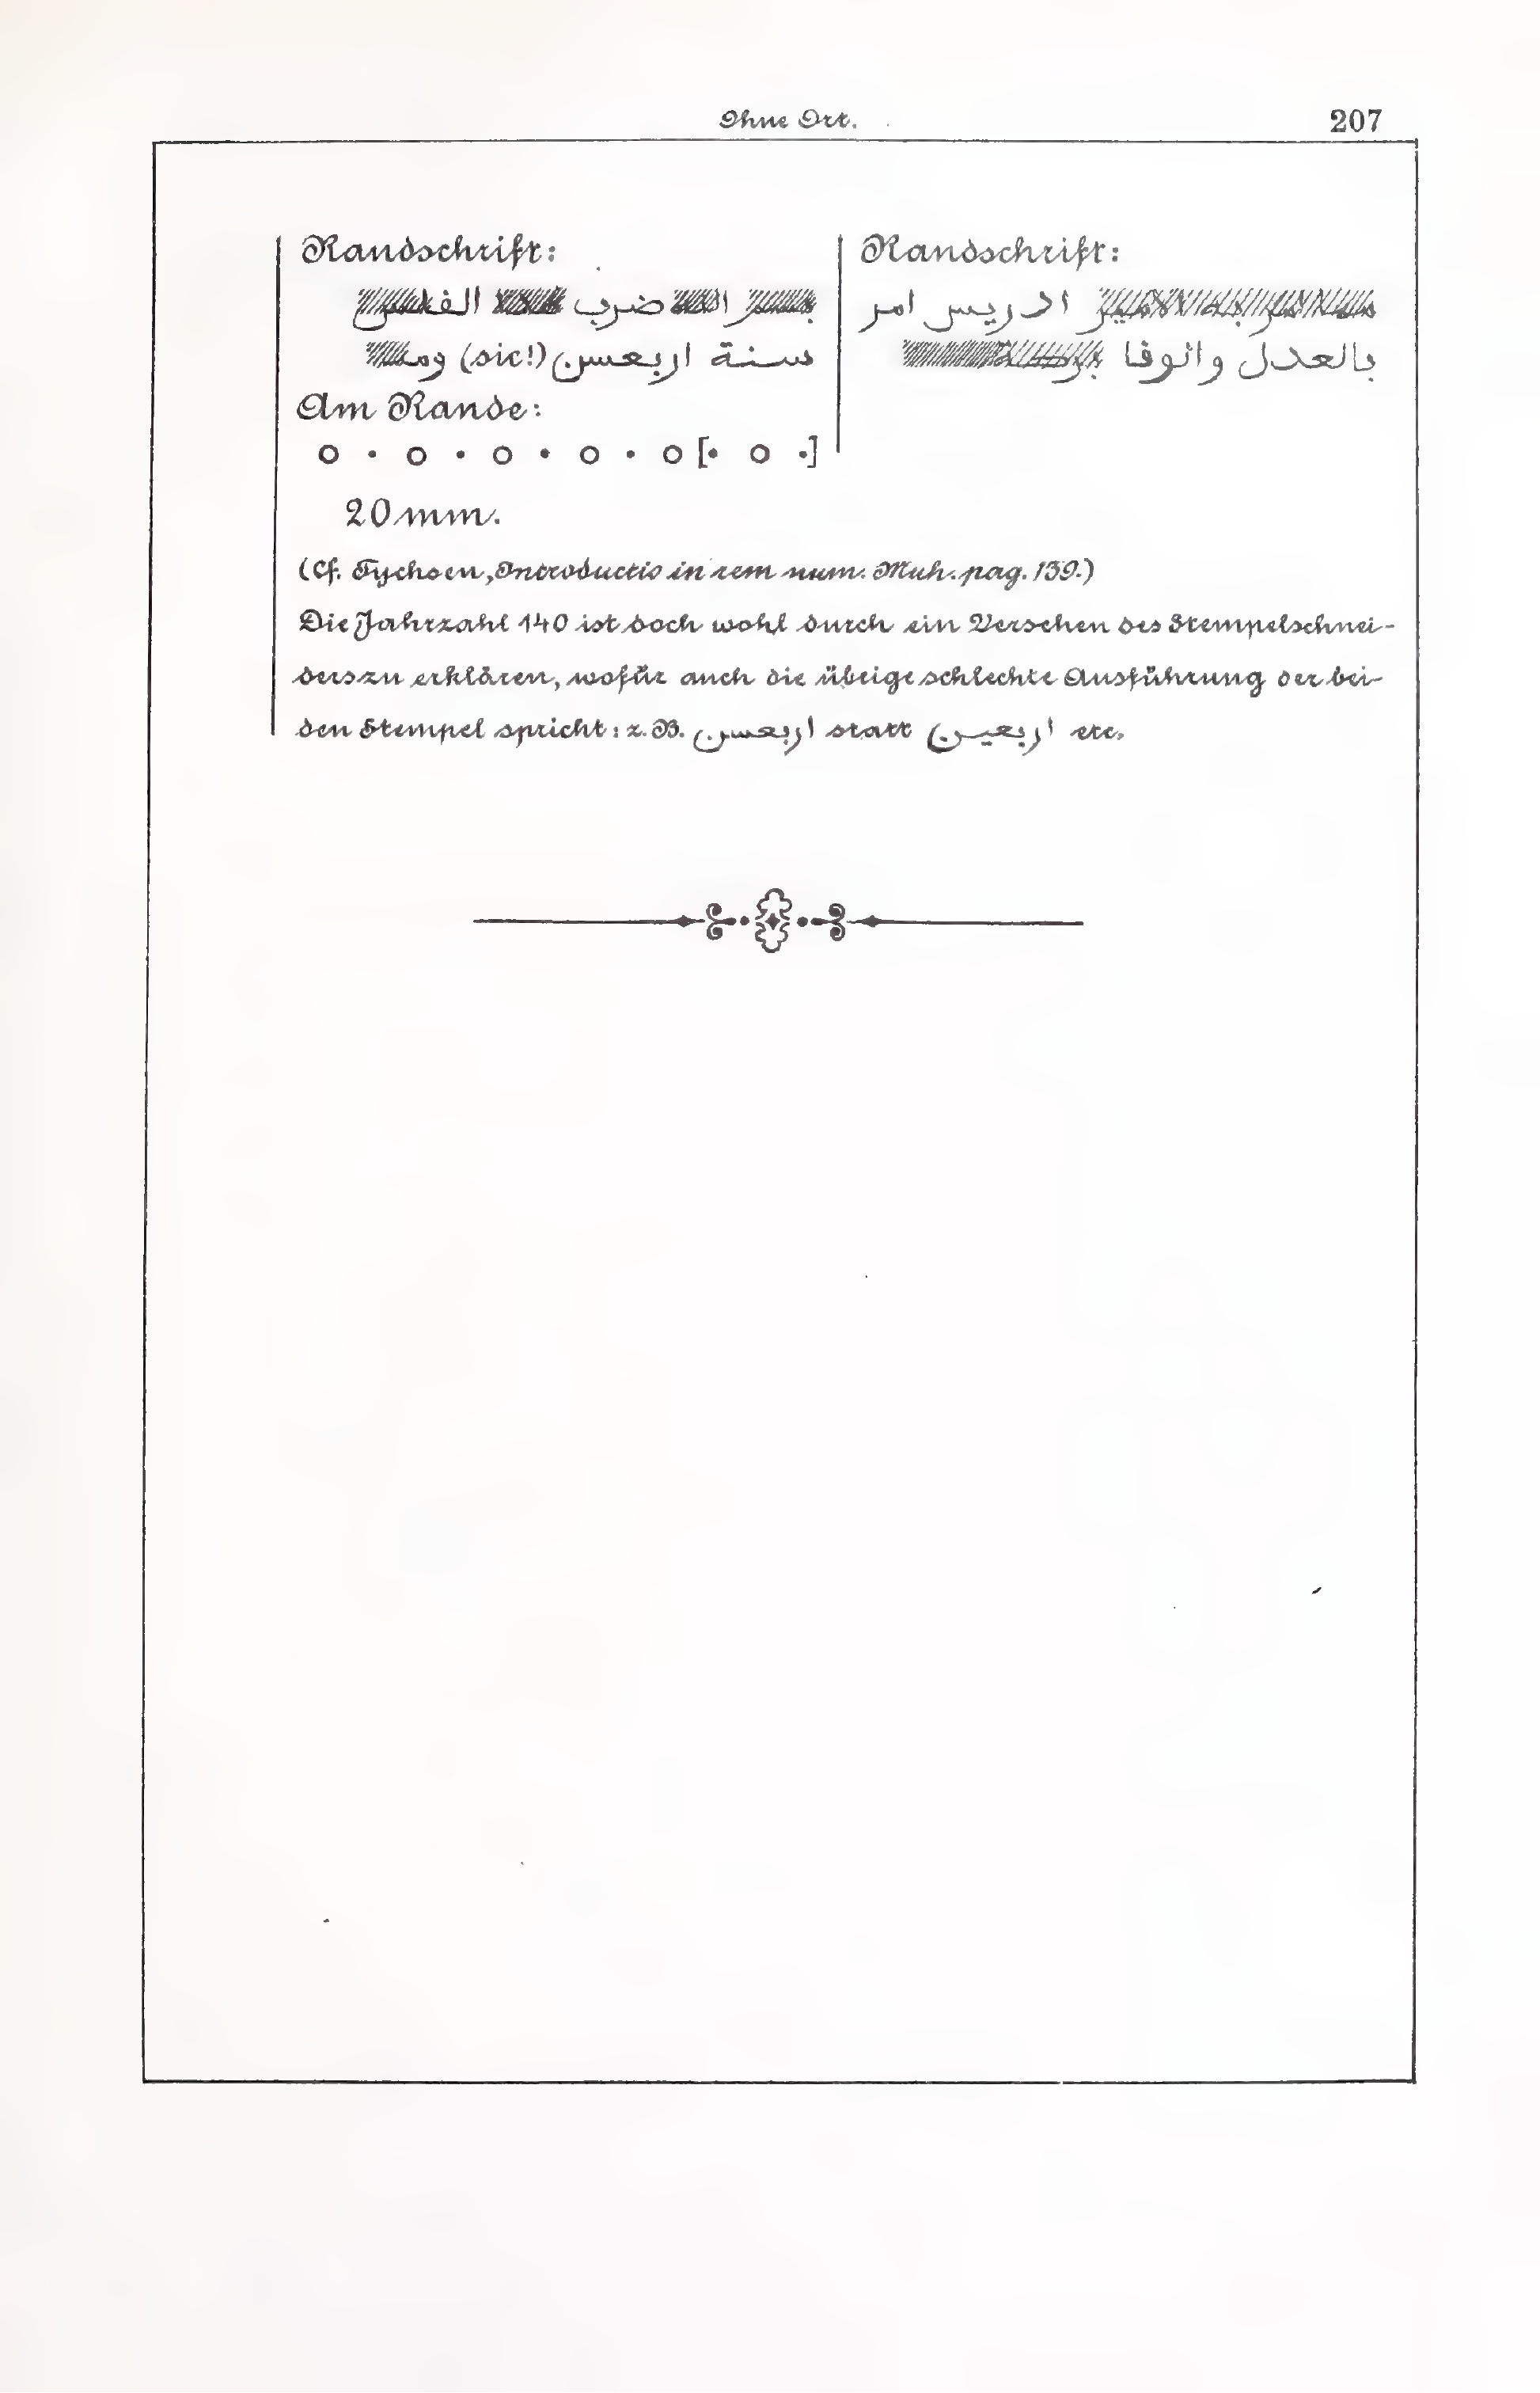 Ohne Ort.
207
Randschrift:
بسم الله ضرب هذا الفلس
سنة اربعسن (sic!) ومىه
Am Rande:
o · o · o · o · o [· o ·]
Randschrift:
مما امر به الامير ادريس امر
بالعدل والوفا
20 mm.
(Cf. Tychsen, Introductio in rem num. Muh. pag. 139.)
Die Jahrzahl 140 ist doch wohl durch ein Versehen des Stempelschnei-
ders zu erklären, wofür auch die übrige schlechte Ausführung der bei-
den Stempel spricht: z. B. اربعسن statt اربعين etc.